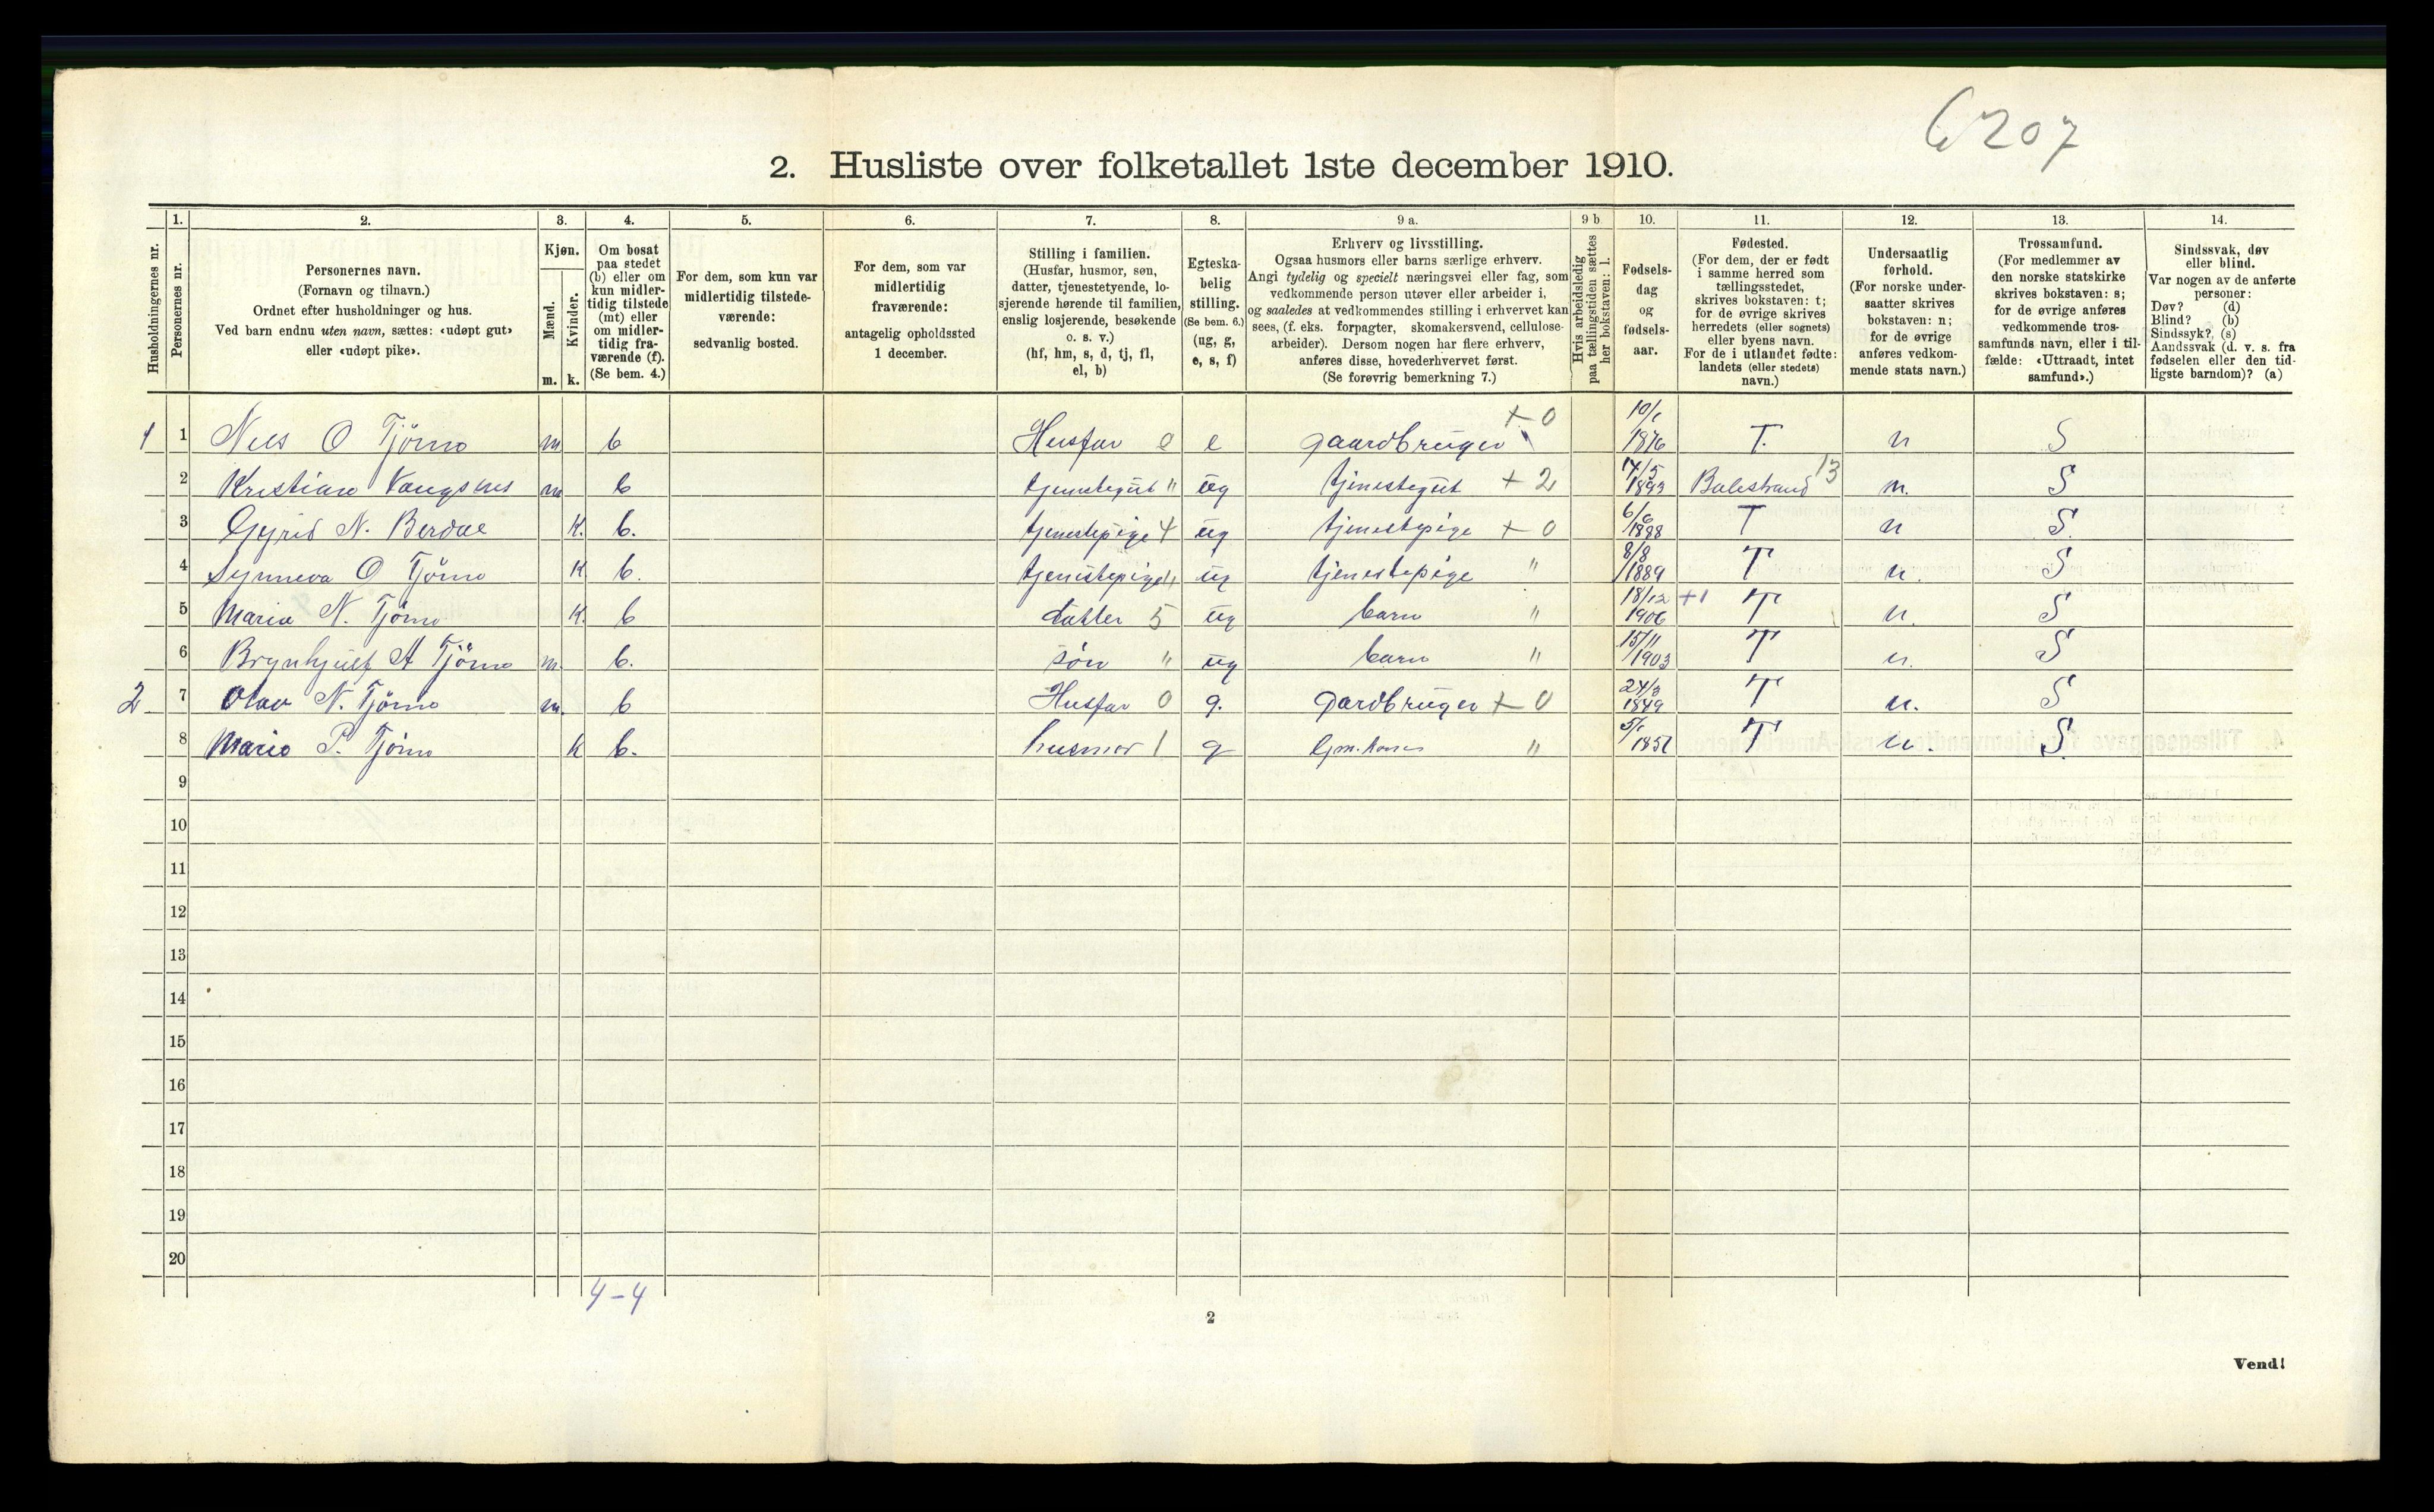 6207
2. Husliste over folketallet 1ste december 1910.
Husholdningernes nr.
1.
Personernes nr.
2.
Personernes navn.
(Fornavn og tilnavn.)
Ordnet efter husholdninger og hus.
Ved barn endnu uten navn, sættes: «udøpt gut»
eller «udøpt pike».
3.
Kjøn.
Mænd.
Kvinder.
m. k.
4.
Om bosat
paa stedet
(b) eller om
kun midler-
tidig tilstede
(mt) eller
om midler-
tidig fra-
værende (f).
(Se bem. 4.)
5.
For dem, som kun var
midlertidig tilstede-
værende:
sedvanlig bosted.
6.
For dem, som var
midlertidig
fraværende:
antagelig opholdssted
1 december.
7.
Stilling i familien.
(Husfar, husmor, søn,
datter, tjenestetyende, lo-
sjerende hørende til familien,
enslig losjerende, besøkende
o. s. v.)
(hf, hm, s, d, tj, fl,
el, b)
8.
Egteska-
belig
stilling.
(Se bem. 6.)
(ug, g,
e, s, f)
9 a.
Erhverv og livsstilling.
Ogsaa husmors eller barns særlige erhverv.
Angi tydelig og specielt næringsvei eller fag, som
vedkommende person utøver eller arbeider i,
og saaledes at vedkommendes stilling i erhvervet kan
sees, (f. eks. forpagter, skomakersvend, cellulose-
arbeider). Dersom nogen har flere erhverv,
anføres disse, hovederhvervet først.
(Se forøvrig bemerkning 7.)
9 b
Hvis arbeidsledig
paa tællingstiden sættes
her bokstaven: l.
10.
Fødsels-
dag
og
fødsels-
aar.
11.
Fødested.
(For dem, der er født
i samme herred som
tællingsstedet,
skrives bokstaven: t;
for de øvrige skrives
herredets (eller sognets)
eller byens navn.
For de i utlandet fødte:
landets (eller stedets)
navn.)
12.
Undersaatlig
forhold.
(For norske under-
saatter skrives
bokstaven: n;
for de øvrige
anføres vedkom-
mende stats navn.)
13.
Trossamfund.
(For medlemmer av
den norske statskirke
skrives bokstaven: s;
for de øvrige anføres
vedkommende tros-
samfunds navn, eller i til-
fælde: «Uttraadt, intet
samfund».)
14.
Sindssvak, døv
eller blind.
Var nogen av de anførte
personer:
Døv? (d)
Blind? (b)
Sindssyk? (s)
Aandssvak (d. v. s. fra
fødselen eller den tid-
ligste barndom)? (a)
1 1 Nils O Tjörno m b Husfar e e gaardbruger + 0 10/1 1876 T. n S
2 Kristian Vangsnes m b tjenestegut " ug tjenestegut + 2 14/5 1893 Balestrand 13 n. S
3 Gyrid N. Berdal K. b. tjenestepige 4 ug tjenestepige + 0 6/6 1888 T n S.
4 Synneva O Tjörno K b. tjenestepige " ug tjenestepige " 8/8 1889 T n. S
5 Maria N. Tjörno K. b datter 5 ug barn " 18/12 1906 +1 T n. S
6 Brynhjulf A Tjörno m. b. sön " ug barn " 15/11 1903 T n. S
2 7 Olav N. Tjörno m. b Husfar 0 g. gardbruger + 0 24/3 1849 T n. S
8 Mario P. Tjörno k b. husmor 1 g " 5/1 T n. S.
9
10
11
12
13
14
15
16
17
18
19
20
4 - 4
2
Vend!